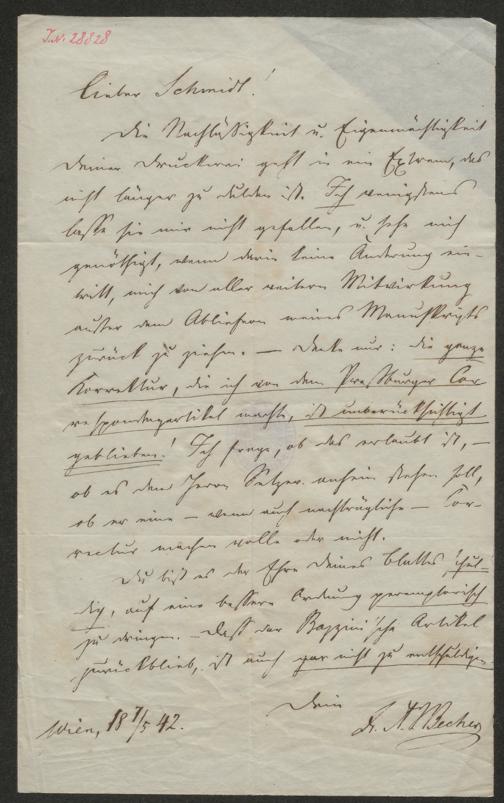 J.N. 28828
Lieber Schmidt!
Die Nachlässigkeit u. Eigenmächtigkeit
Deiner Druckerei geht in ein Extrem, das
nicht länger zu dulden ist. Ich wenigstens
lasse sie mir nicht gefallen, u. sehe mich
genöthigt, wenn darin keine Änderung ein-
tritt, mich von aller weitern Mitwirkung
außer dem Abliefern meines Manuskripts
zurück zu ziehen. — Denke nur: die ganze
Korrektur, die ich von dem Pressburger Cor
respondenzartikel machte, ist unberücksichtigt
geblieben! Ich frage, ob das erlaubt ist, —
ob es dem Herrn Setzer anheim stehen soll,
ob er eine — wenn auch nachträgliche — Cor-
rectur machen wolle oder nicht.
Du bist es der Ehre Deines Blattes schul-
dig, auf eine bessere Ordnung peremptorisch
zu dringen. — Dass der Bazzini'sche Artikel
zurückblieb, ist auch gar nicht zu entschuldigen.
Dein
Wien, 18 7/5 42.
Dr. A. J. Becher